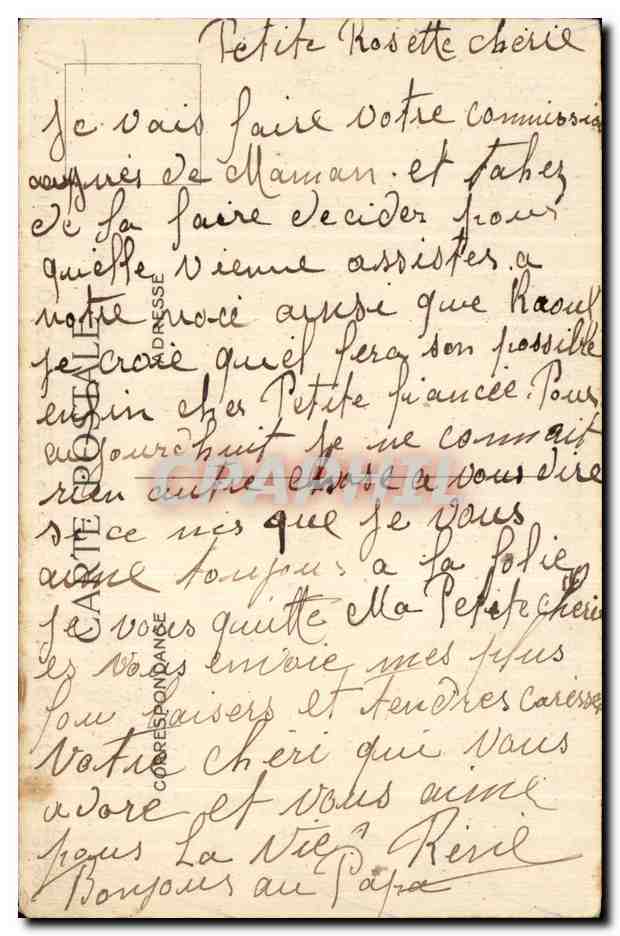 Petite Rosette cherie
Je vais faire votre commission
aupres de Maman. et tahez
de la faire decider pour
quelle vienne assister a
notre noce ainsi que Raoul
je croie quel fera son possible
enfin cher Petite fiancée. Pour
aujourdhuit je ne connait
rien autre chose a vous dire
si ce nes que je vous
aime toujour a la folie
Je vous quitte Ma Petite cheri
es vous envoie mes plus
fou baisers et tendres caresses
Votre chéri qui vous
adore et vous aime
pour La Vie René
Bonjour au Papa
CARTE POSTALE
ADRESSE
CORRESPONDANCE
CPAPHIL